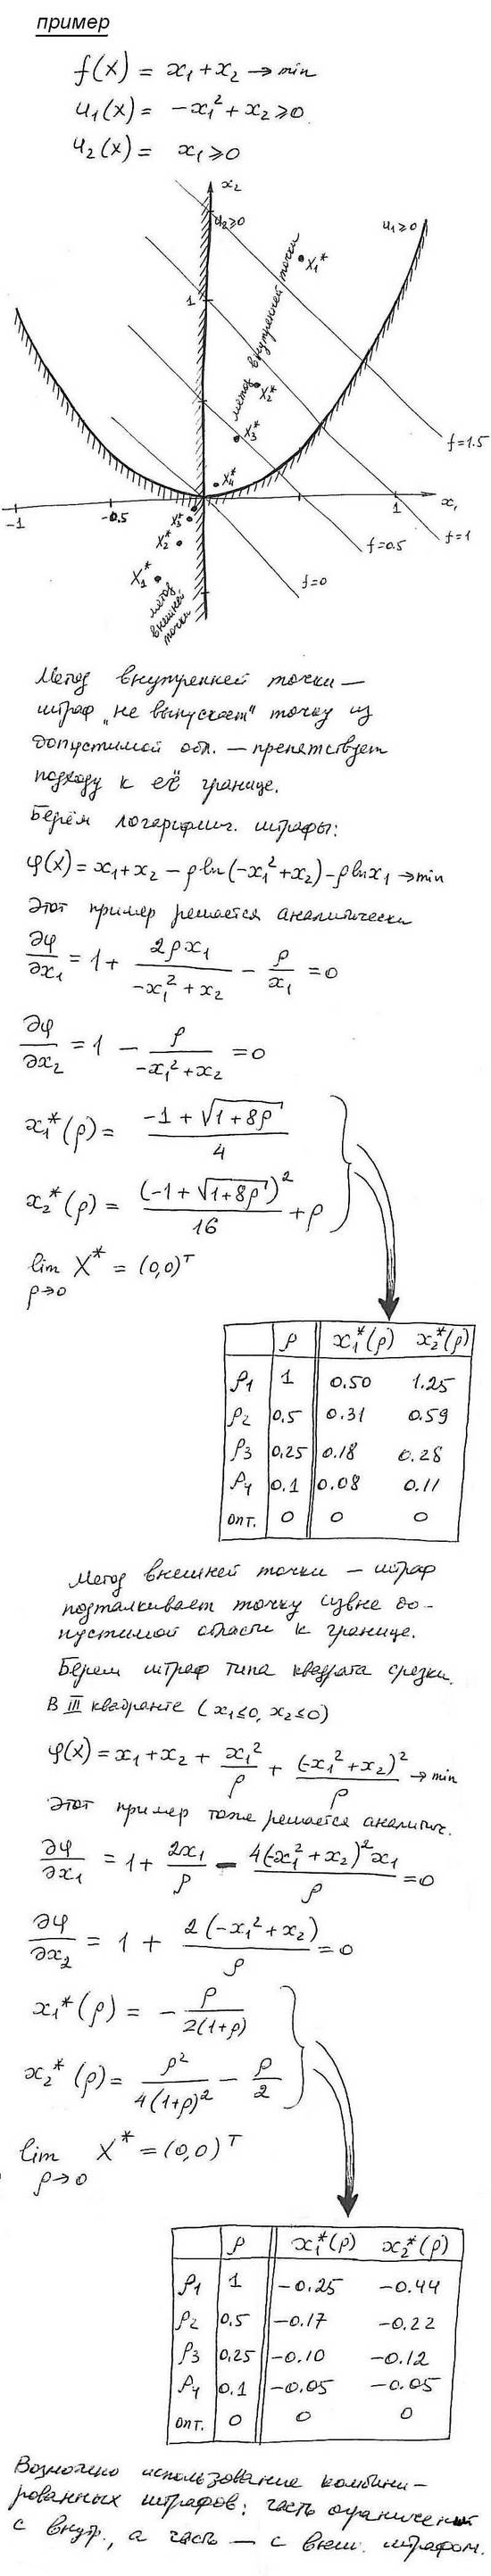 пример
f(x) = x₁ + x₂ → min
u₁(x) = −x₁² + x₂ ≥ 0.
u₂(x) = x₁ ≥ 0
x₂
u₂≥0
u₁≥0
метод внутренней точки
X₁*
1
X₂*
X₃*
f=1.5
X₄*
-1
-0.5
1
x₁
X₃*
f=1
X₂*
f=0.5
X₁*
f=0
метод
внешней
точки
Метод внутренней точки —
штраф „не выпускает" точку из
допустимой обл. — препятствует
подходу к её границе.
Берём логарифмич. штрафы:
φ(x) = x₁ + x₂ − ρ ln(−x₁² + x₂) − ρ ln x₁ → min
Этот пример решается аналитически
∂φ/∂x₁ = 1 + 2ρx₁/(−x₁² + x₂) − ρ/x₁ = 0
∂φ/∂x₂ = 1 − ρ/(−x₁² + x₂) = 0
x₁*(ρ) = (−1 + √(1+8ρ))/4
x₂*(ρ) = (−1 + √(1+8ρ))²/16 + ρ
lim X* = (0,0)ᵀ
ρ→0
ρ x₁*(ρ) x₂*(ρ)
ρ₁ 1 0.50 1.25
ρ₂ 0,5 0.31 0.59
ρ₃ 0,25 0.18 0.28
ρ₄ 0.1 0.08 0.11
опт. 0 0 0
Метод внешней точки — штраф
подталкивает точку извне до-
пустимой области к границе.
Берем штраф типа квадрата срезки.
В III квадранте (x₁≤0, x₂≤0)
φ(x) = x₁ + x₂ + x₁²/ρ + (−x₁² + x₂)²/ρ → min
Этот пример тоже решается аналитич.
∂φ/∂x₁ = 1 + 2x₁/ρ − 4(−x₁² + x₂)²x₁/ρ = 0
∂φ/∂x₂ = 1 + 2(−x₁² + x₂)/ρ = 0
x₁*(ρ) = − ρ/2(1+ρ)
x₂*(ρ) = ρ²/4(1+ρ)² − ρ/2
lim X* = (0,0)ᵀ
ρ→0
ρ x₁*(ρ) x₂*(ρ)
ρ₁ 1 −0.25 −0.44
ρ₂ 0,5 −0.17 −0.22
ρ₃ 0,25 −0.10 −0.12
ρ₄ 0.1 −0.05 −0.05
опт. 0 0 0
Возможно использование комбини-
рованных штрафов: часть ограничений
с внутр., а часть — с внеш. штрафом.